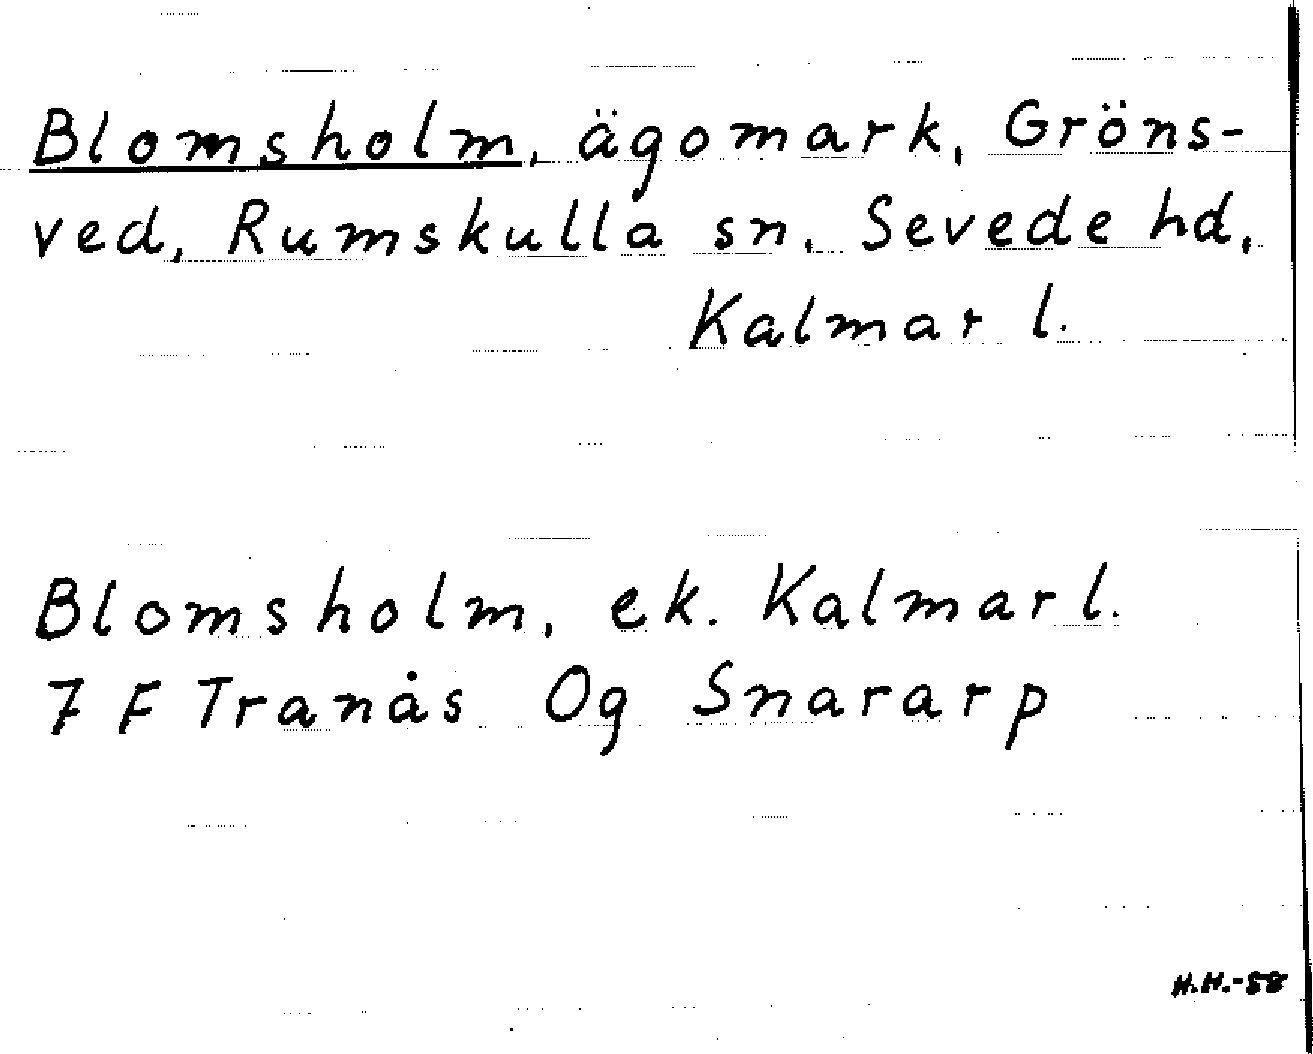 Blomsholm, ägomark, Gröns-
ved, Rumskulla sn, Sevede hd,
Kalmar l.
Blomsholm, ek. Kalmar l.
7 F Tranås Og Snararp
H.H.-58